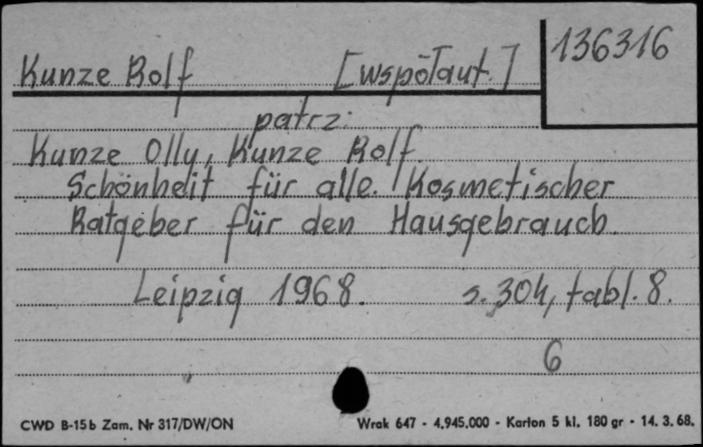 136316
Kunze Rolf [współaut.]
patrz:
Kunze Olly, Kunze Rolf.
Schönheit für alle. Kosmetischer
Ratgeber für den Hausgebrauch.
Leipzig 1968. s. 304, tabl. 8.
6
CWD B-15b Zam. Nr 317/DW/ON Wrak 647 - 4.945.000 - Karton 5 kl. 180 gr - 14. 3. 68.